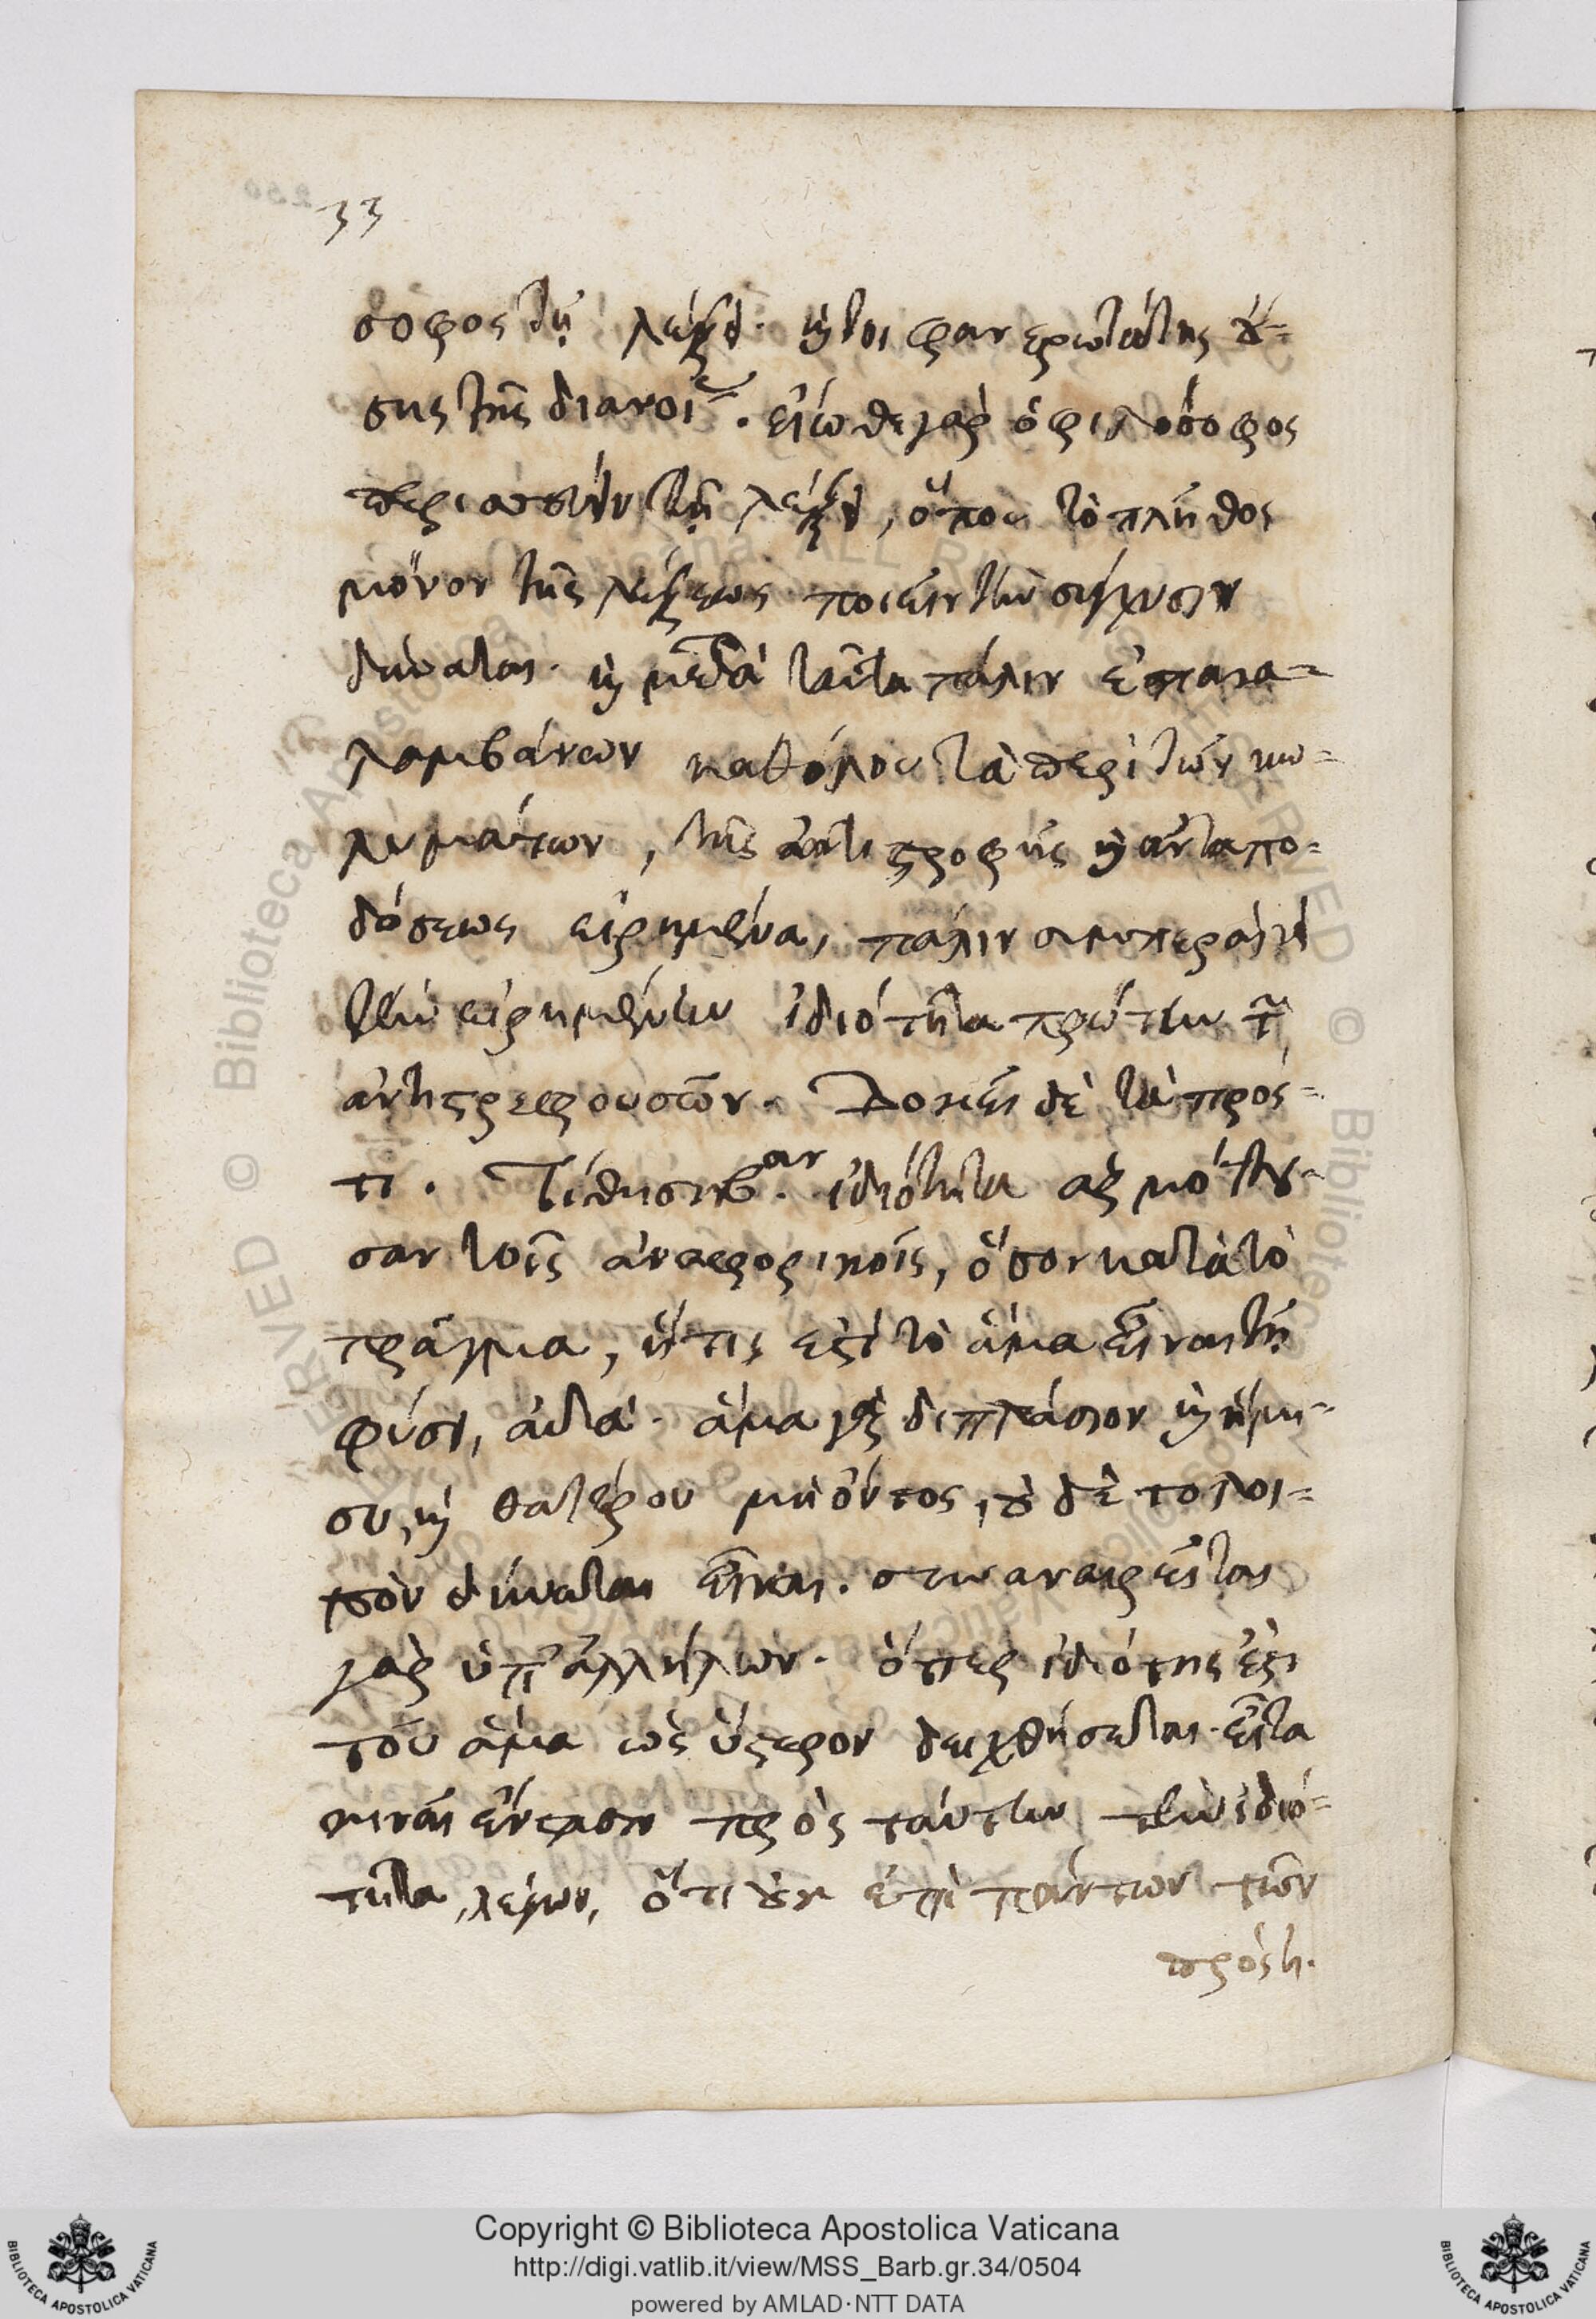 33
σοφος τῇ λέξει. καίτοι φανερωτάτης οὔ=
σης τῆς διανοίας. εἴωθε γὰρ ὁ φιλόσοφος
τῇ λέξει, ὅπου τὸ πλῆθος
μόνον τῆς λέξεως ποιεῖν τὴν σύγχυσιν
δύναται. καὶ μετὰ ταῦτα πάλιν ἐπανα=
λαμβάνων καθόλου τὰ περὶ τῶν κω=
λυμάτων, τῆς ἀντιστροφῆς καὶ ἀνταπο=
δόσεως εἰρημένα, πάλιν συμπεραίνει
τὴν εἰρημένην ἰδιότητα πρώτην τ
ἀντιστρεφουσῶν. Δοκεῖ δὲ τὰ πρός=
τι. Τίθησι β.αν ἰδιότητα ἁρμότου=
σαν τοῖς ἀναφορικοῖς, ὅσον κατὰ τὸ
πρᾶγμα, ἥτις ἐστὶ τὸ ἅμα εἶναι τῇ
φύσει, ἅμα γὰρ διπλάσιον καὶ ἥμι=
συ, καὶ θατέρου μὴ ὄντος, οὐδὲ τὸ λοι=
πὸν δύναται εἶναι. συναναιρεῖται
γὰρ ὑπ' ἀλλήλων. ὅπερ ἰδιότης ἐστι
τοῦ ἅμα ὡς ὕστερον δειχθήσεται. εἶτα
κινεῖ ἔνστασιν πρὸς ταύτην τὴν ἰδιό=
τητα, λέγων, ὅτι οὐκ ἐπὶ πάντων τῶν
πρόςτι.
Copyright © Biblioteca Apostolica Vaticana
http://digi.vatlib.it/view/MSS_Barb.gr.34/0504
powered by AMLAD·NTT DATA